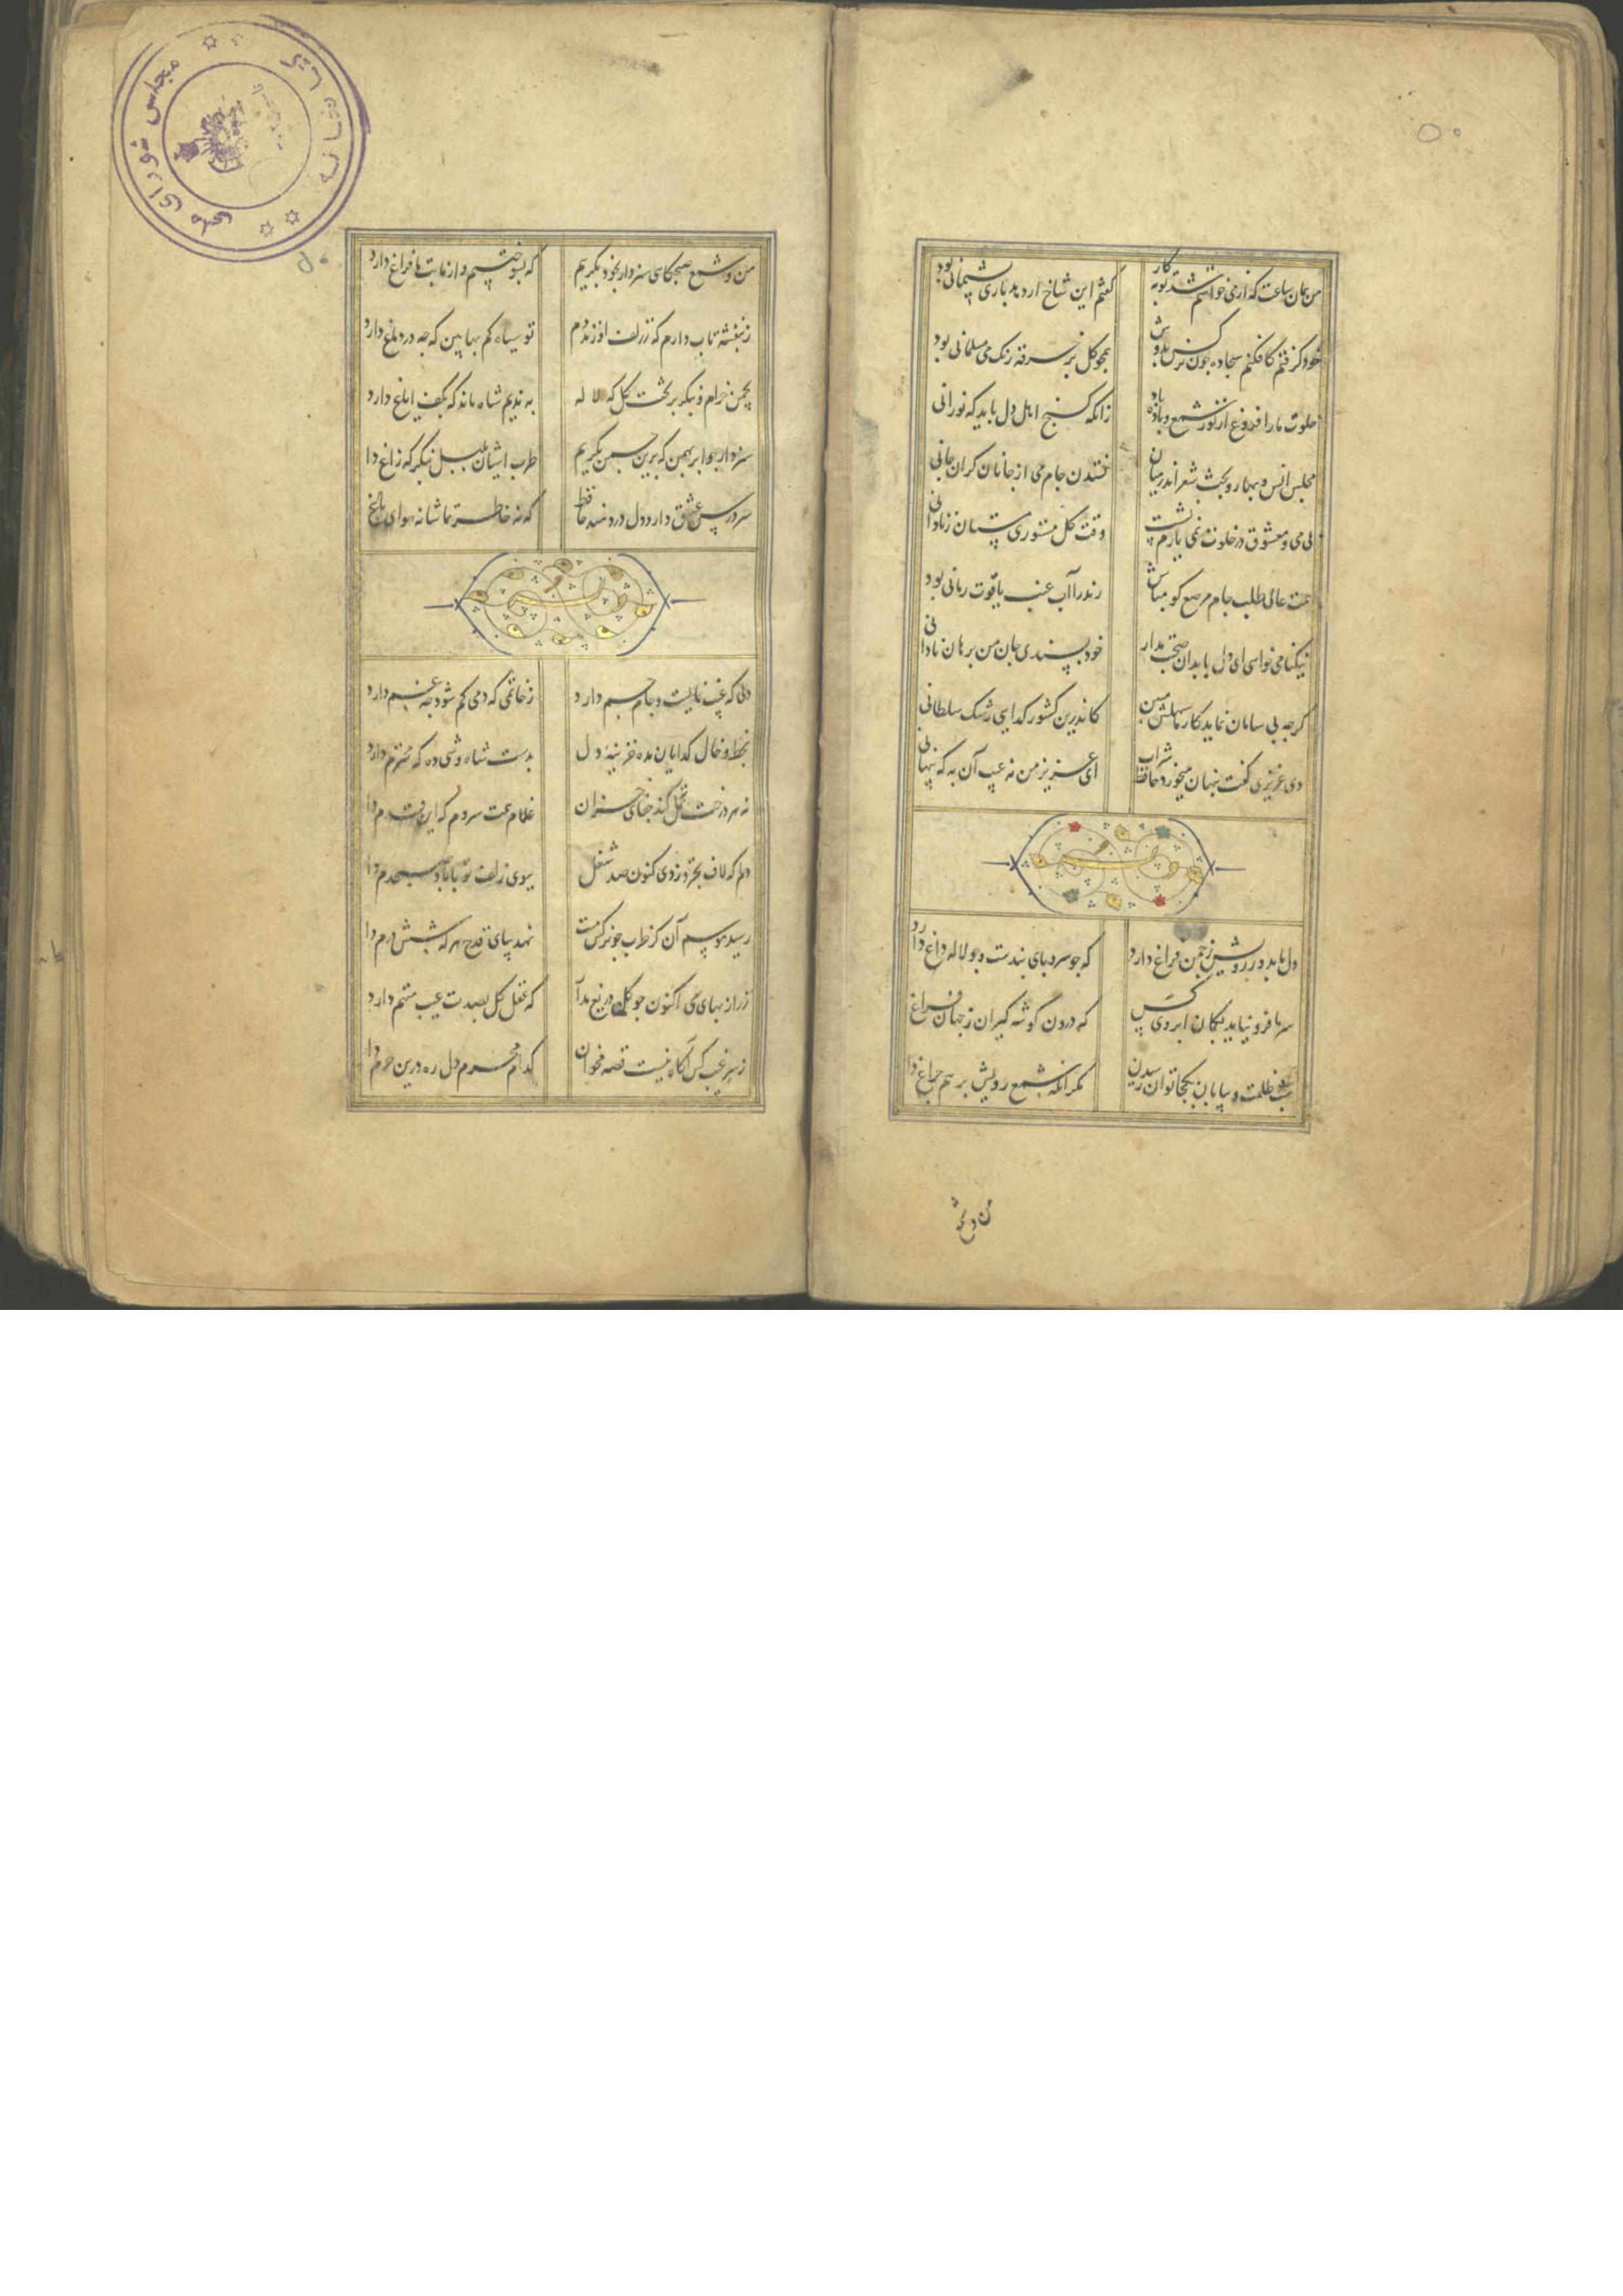 من همان ساعت که از می خواستم شد توبه کار
گفتم این شاخ ار دهد باری پشیمانی بود
خود گرفتم کافکنم سجاده چون سوسن بدوش
همچو گل بر خرقه رنک می مسلمانی بود
خلوت ما را فروغ از نور شمع و باده باد
زانکه کنج اهل دل باید که نورانی
مجلس انس و بهار و بحث شعر اندر میان
نستدن جام می از جانان کران جانی
بی می و معشوق در خلوت نمی یارم نشست
وقت کل مستوری مستان ز نادانی
همت عالی طلب جام مرصع کو مباش
رند را آب عنب یاقوت رمانی بود
نیکنامی خواهی ای دل با بدان صحبت مدار
خودپسندی جان من برهان نادانی
کرچه بی سامان نماید کار ما سهلش مبین
کاندرین کشور کدایی رشک سلطانی
دی عزیزی کفت پنهان میخورد حافظ شراب
ای عزیز من نه عیب آن به که پنهانی
دل ما بدور رویش ز چمن فراغ دارد
که چو سرو پای بندست و چو لاله داغ دارد
سر ما فرو نیاید بکمان ابروی کس
که درون کوشه کیران ز جهان فراغ
شب ظلمت و بیابان بکجا توان رسیدن
مکر آنکه شمع رویش برهم چراغ دا
من و شمع صبحکاهی سزد ار بخود بکرییم
که بسوختیم و از ما بت ما فراغ دارد
ز بنفشه تاب دارم که ز زلف او زند دم
تو سیاه کم بها بین که چه در دماغ دارد
بچمن خرام و بنکر بر تخت کل که لاله
به ندیم شاه ماند که بکف ایاغ دارد
سزد ار چو ابر بهمن که برین چمن بکرییم
طرب آشیان بلبل بنکر که زاغ دا
سر درس عشق دارد دل دردمند حافظ
که نه خاطر تماشا نه هوای باغ
دلی که غیب نمایست و جام جم دارد
ز خاتمی که دمی کم شود چه غم دارد
بخط و خال کدایان مده خزینه دل
بدست شاه وشی ده که محترم دارد
نه هر درخت تحمل کند جفای خزان
غلام همت سروم که این قدم دا
دلم که لاف تجرد زدی کنون صد شغل
ببوی زلف تو با باد صبحدم دا
رسید موسم آن کز طرب چو نرکس مست
نهد بپای قدح هر که شش درم دا
زر از بهای می اکنون چو کل دریغ مدا
که عقل کل بصدت عیب متهم دارد
ز سر غیب کس آکاه نیست قصه مخوان
کدام محرم دل ره درین حرم دا